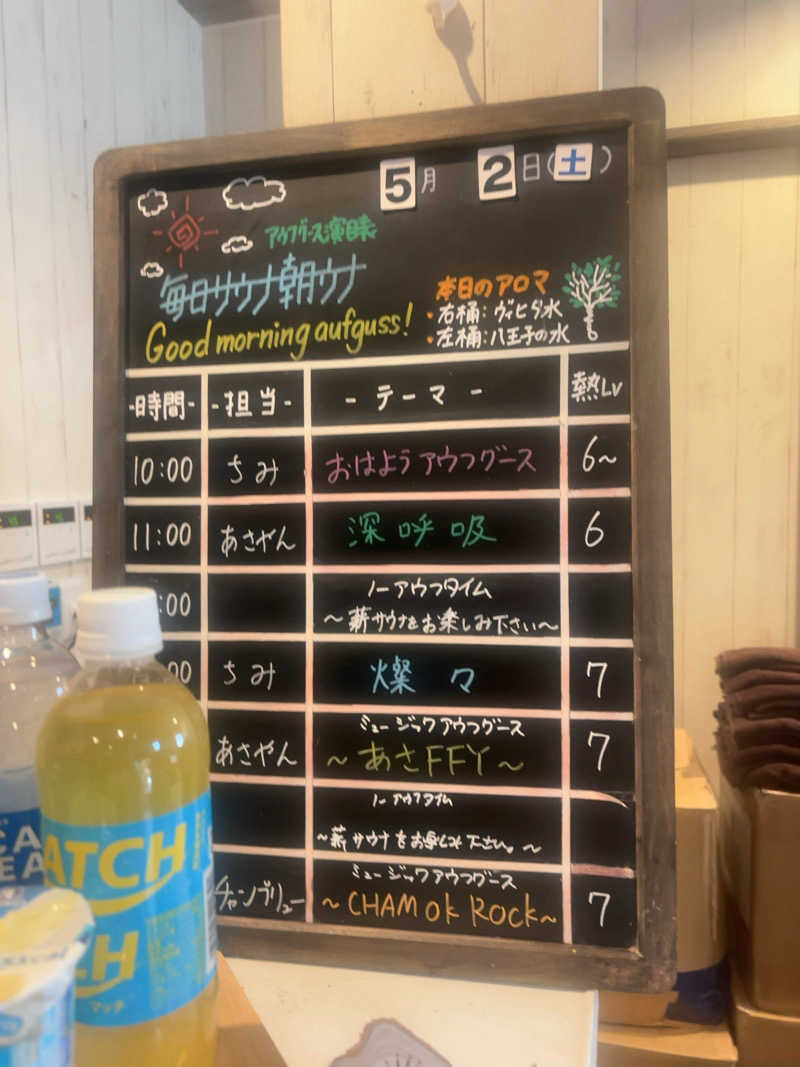 5月 2日(土)
アウフグース演目表
毎日サウナ朝ウナ
Good morning aufguss!
本日のアロマ
・右桶:ヴィヒラ水
・左桶:八王子の水
-時間- -担当- -テーマ- 熱Lv
10:00 ちみ おはようアウフグース 6~
11:00 あさやん 深呼吸 6
:00 ノーアウフタイム
~薪サウナをお楽しみ下さい~
:00 ちみ 燦々 7
ミュージックアウフグース
あさやん ~あさFFY~ 7
ノーアウフタイム
~薪サウナをお楽しみ下さい。~
ミュージックアウフグース
チャンプリュー ~CHAM OK ROCK~ 7
ATCH
CH
マッチ
CA
EA